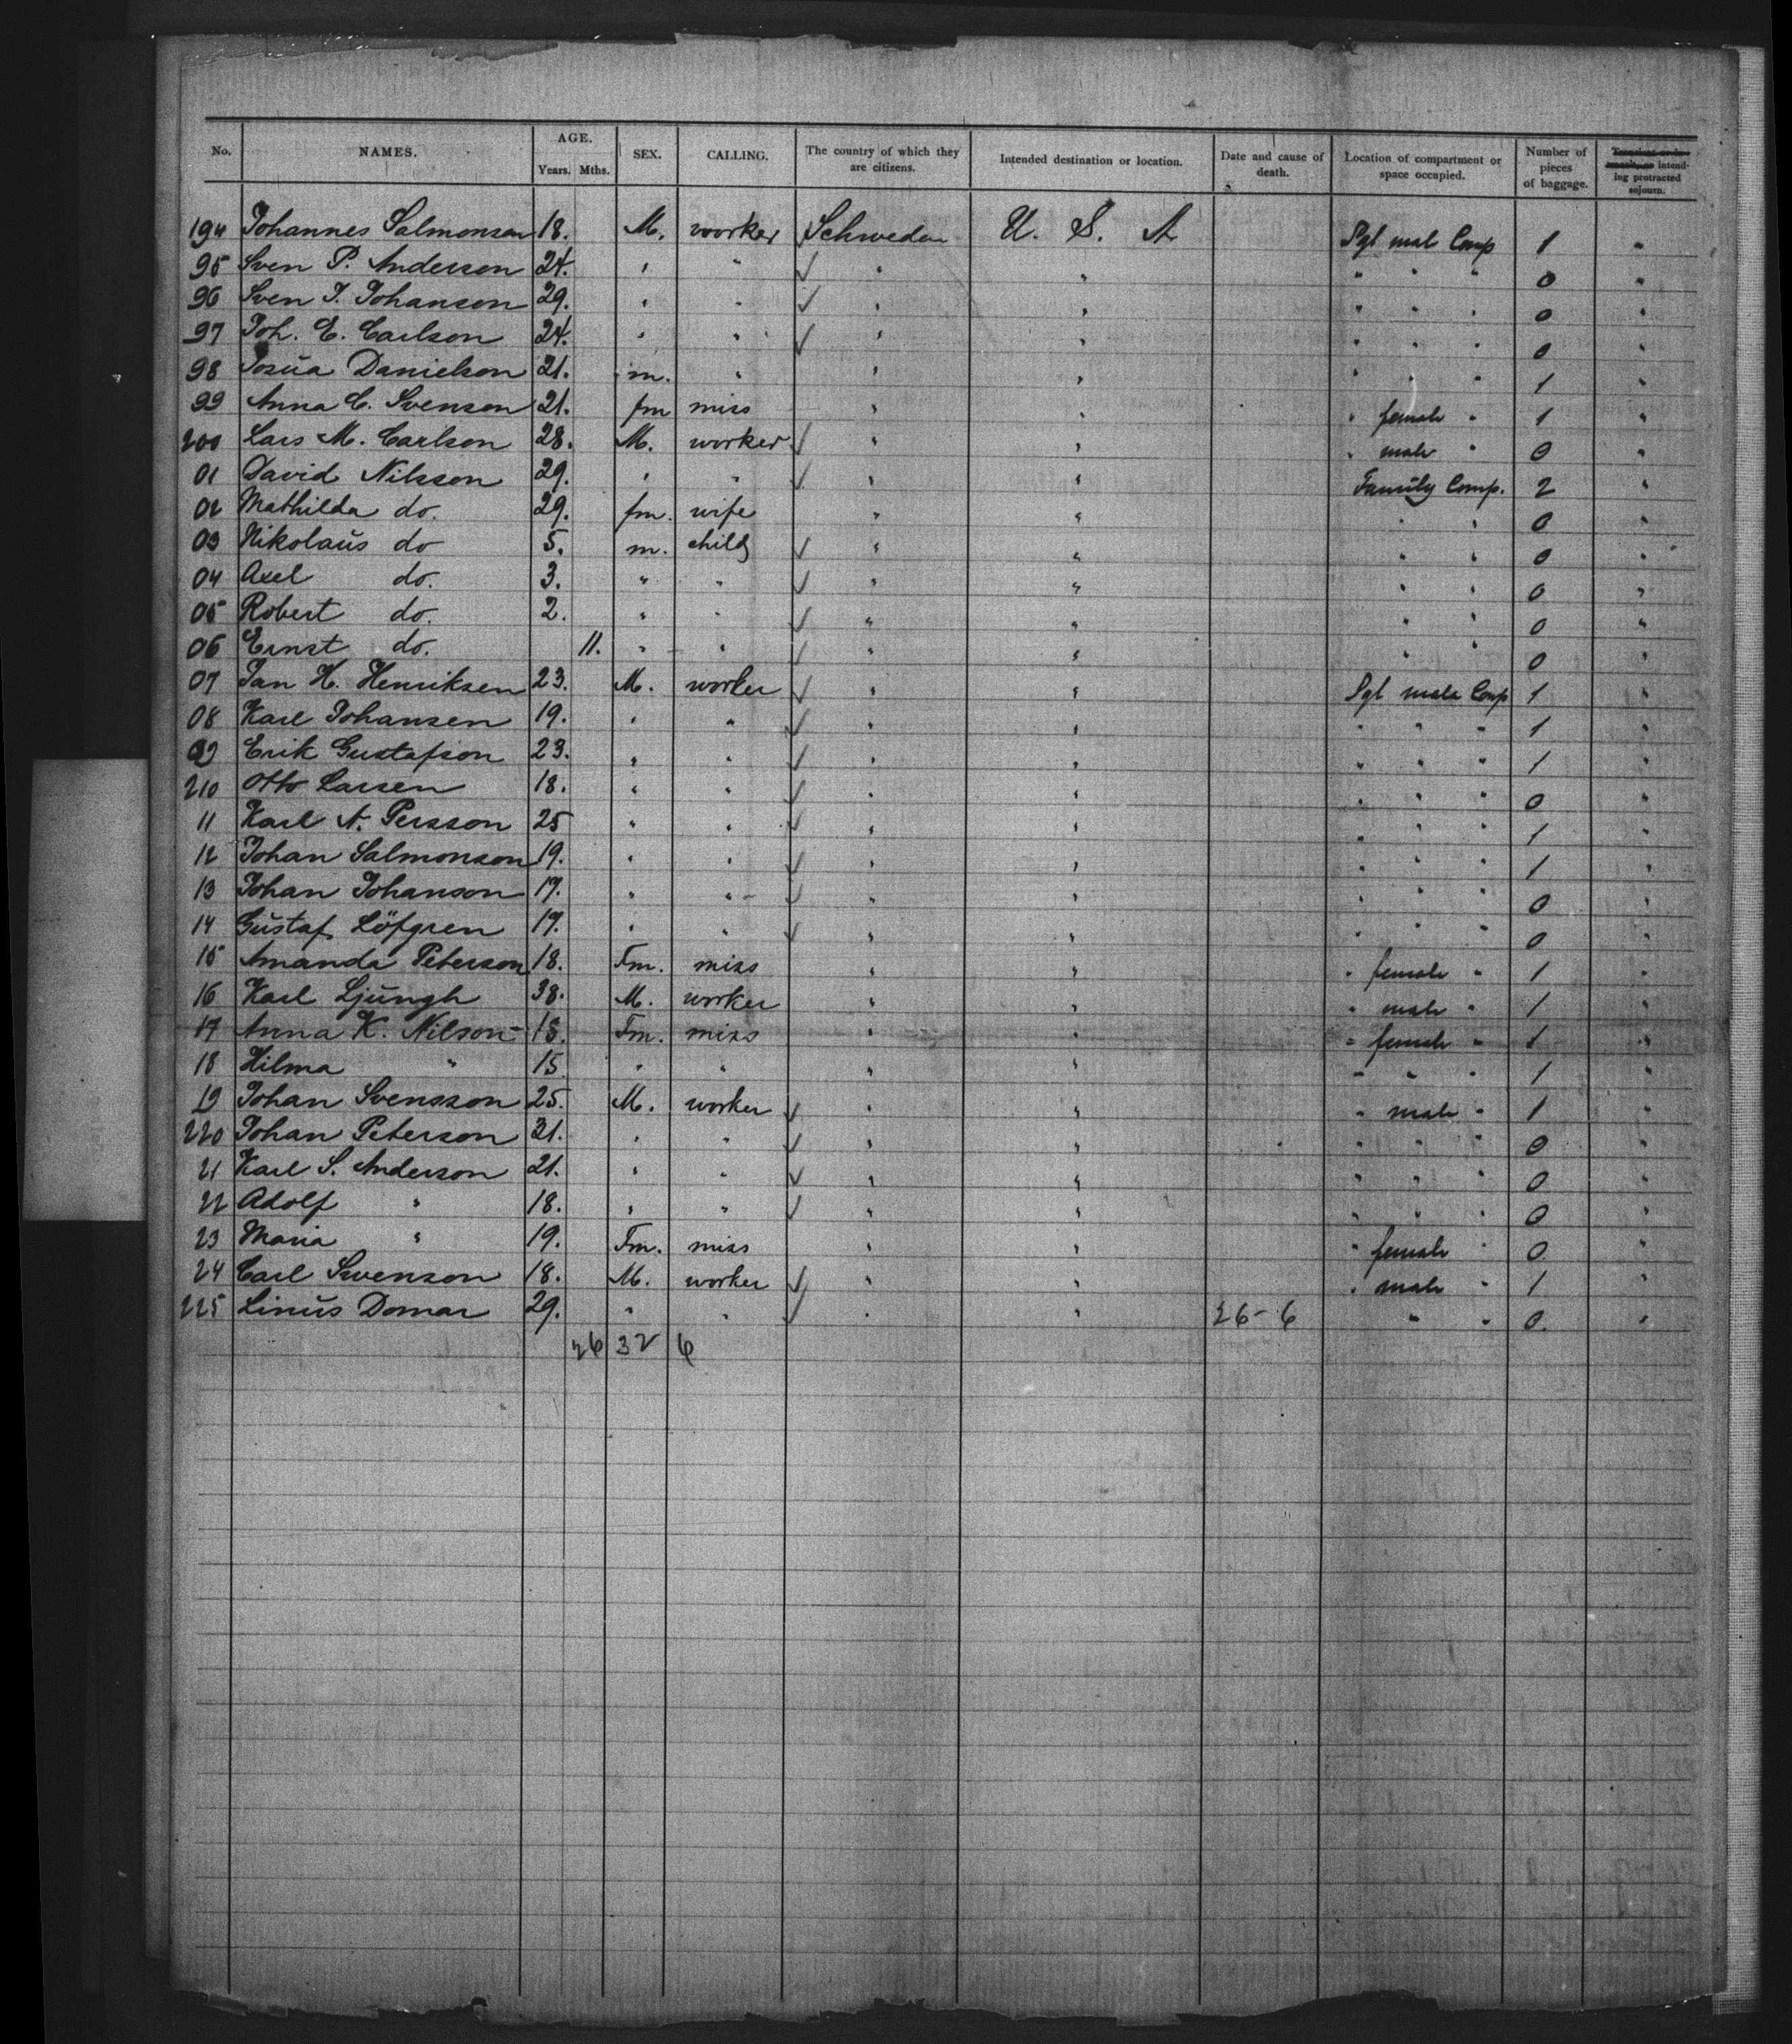 No. NAMES. AGE. Years. Mths. SEX. CALLING. The country of which they are citizens. Intended destination or location. Date and cause of death. Location of compartment or space occupied. Number of pieces of baggage. intending protracted sojourn.
194 Johannes Salmonson 18. M. worker Schweden U. S. A Sgl male Comp 1 "
95 Sven P. Anderson 24. " " ✓ " " " " " 0 "
96 Sven J. Johanson 29. " " ✓ " " " " " 0 "
97 Joh. E. Carlson 24. " " ✓ " " " " " 0 "
98 Josua Danielson 21. m. " " " " " " 1 "
99 Anna C. Svenson 21. fm miss " " " female " 1 "
200 Lars M. Carlson 28. M. worker ✓ " " " male " 0 "
01 David Nilsson 29. " " ✓ " " Family Comp. 2 "
02 Mathilda do. 29. fm. wife " " " " 0 "
03 Nikolaus do 5. m. child ✓ " " " " 0 "
04 Axel do. 3. " " ✓ " " " " 0 "
05 Robert do. 2. " " ✓ " " " " 0 "
06 Ernst do. 11. " " ✓ " " " " 0 "
07 Jan H. Henriksen 23. M. worker ✓ " " Sgl male Comp 1 "
08 Karl Johansen 19. " " ✓ " " " " " 1 "
09 Erik Gustafson 23. " " ✓ " " " " " 1 "
210 Otto Larsen 18. " " ✓ " " " " " 0 "
11 Karl A. Persson 25 " " ✓ " " " " " 1 "
12 Johan Salmonson 19. " " ✓ " " " " " 1 "
13 Johan Johanson 17. " " ✓ " " " " " 0 "
14 Gustaf Löfgren 17. " " ✓ " " " " " 0 "
15 Amanda Peterson 18. Fm. miss " " " female " 1 "
16 Karl Ljungh 38. M. worker " " " male " 1 "
17 Anna K. Nilson 18. Fm. miss " " " female " 1 "
18 Hilma " 15 " " " " " " " 1 "
19 Johan Svensson 25. M. worker ✓ " " " male " 1 "
220 Johan Peterson 31. " " ✓ " " " " " 0 "
21 Karl S. Anderson 21. " " ✓ " " " " " 0 "
22 Adolf " 18. " " ✓ " " " " " 0 "
23 Maria " 19. Fm. miss " " " female " 0 "
24 Carl Swenson 18. M. worker ✓ " " " male " 1 "
225 Linus Domar 29. " " ✓ " " 26-6 " " 0. "
26 32 6